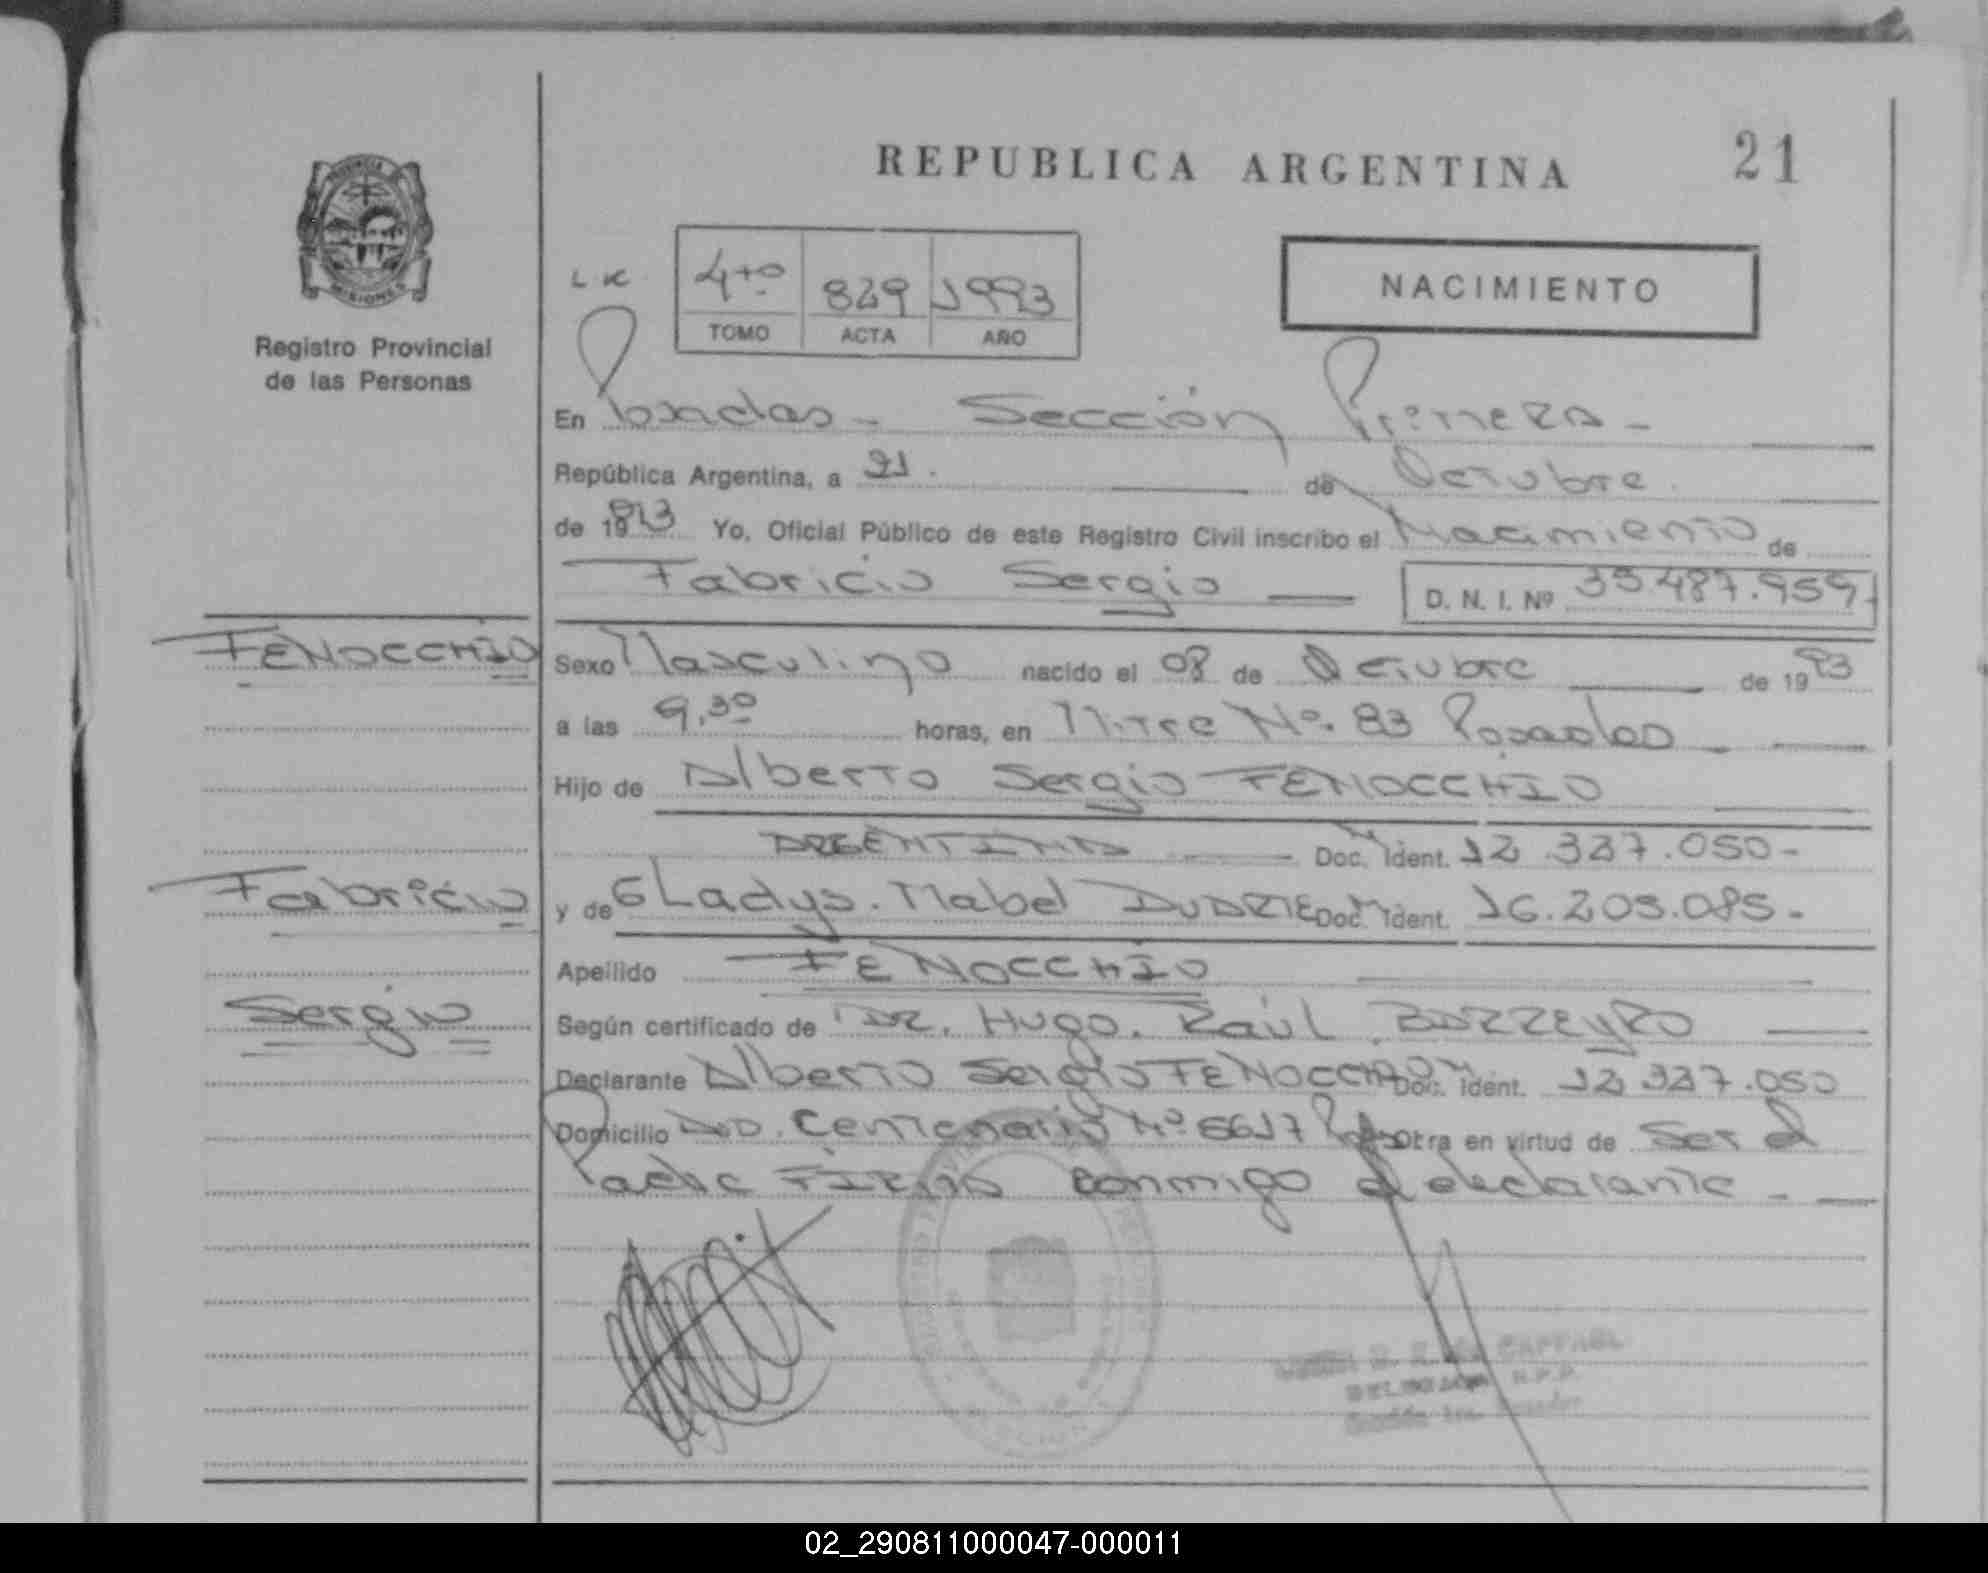 REPUBLICA ARGENTINA
21
PROVINCIA
MISIONES
Registro Provincial
de las Personas
4to 829 1993
TOMO ACTA AÑO
NACIMIENTO
En Posadas - Sección Primera -
República Argentina, a 21. de Octubre
de 1993 Yo, Oficial Público de este Registro Civil inscribo el Nacimiento de
Fabricio Sergio D. N. I. Nº 33.487.959
FENOCCHIO
Sexo Masculino nacido el 08 de Octubre de 1993
a las 9,30 horas, en Mitre Nº 83 Posadas -
Hijo de Alberto Sergio FENOCCHIO
ARGENTINA Doc. Ident. 12.327.050-
Fabricio
y de Gladys Mabel Doc. Ident. 16.205.085-
Apellido FENOCCHIO
Sergio
Según certificado de DR. Hugo Raúl BARREYRO
Declarante Alberto Sergio FENOCCHIO Doc. Ident. 12.327.050
Domicilio Avd. Centenario Nº 6617 Obra en virtud de Ser el
Padre FIRMA conmigo el declarante -
02_290811000047-000011